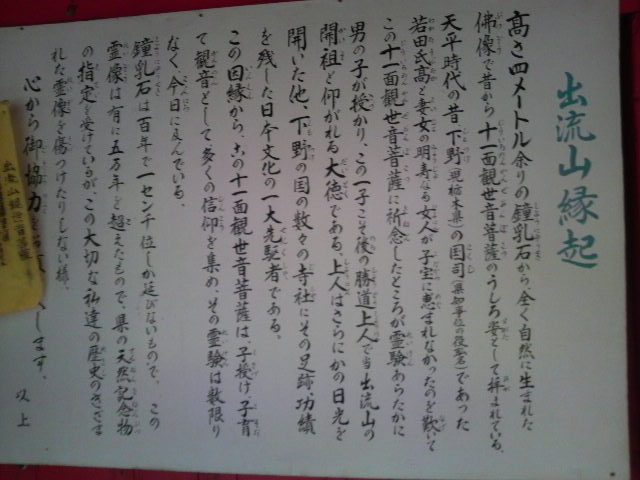 出流山縁起
高さ四メートル余りの鐘乳石から、全く自然に生まれた
佛像で昔から十一面観世音菩薩のうしろ姿として拝まれている。
天平時代の昔下野(現栃木県)の国司(県知事位の役署名)であった
若田氏高と妻女の明寿なる女人が子宝に恵まれなかったのを歎いて
この十一面観世音菩薩に祈念したところが霊験あらたかに
男の子が授かり、この一子こそ後の勝道上人で当出流山の
開祖と仰がれる大徳である。上人はさらにかの日光を
開いた他、下野の国の数々の寺社にその足跡、功績
を残した日本文化の一大先駆者である。
この因縁から、この十一面観世音菩薩は、子授け、子育
て観音として多くの信仰を集め、その霊験は数限り
なく今日に及んでいる。
鐘乳石は百年で一センチ位しか延びないもので、この
霊像は有に五万年を超えたもので、県の天然記念物
の指定を受けているが、この大切な私達の歴史のきざま
れた霊像を傷つけたりしない様、
心から御協力を します。
以上